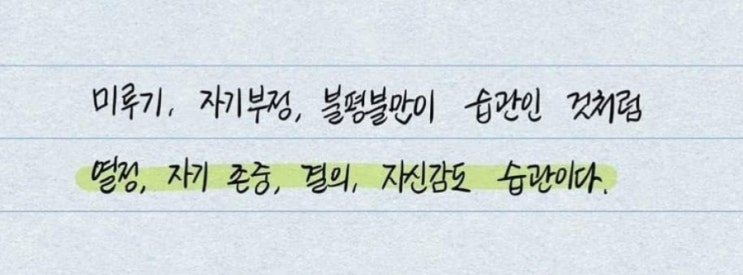 미루기, 자기부정, 불평불만이 습관인 것처럼
열정, 자기 존중, 결의, 자신감도 습관이다.